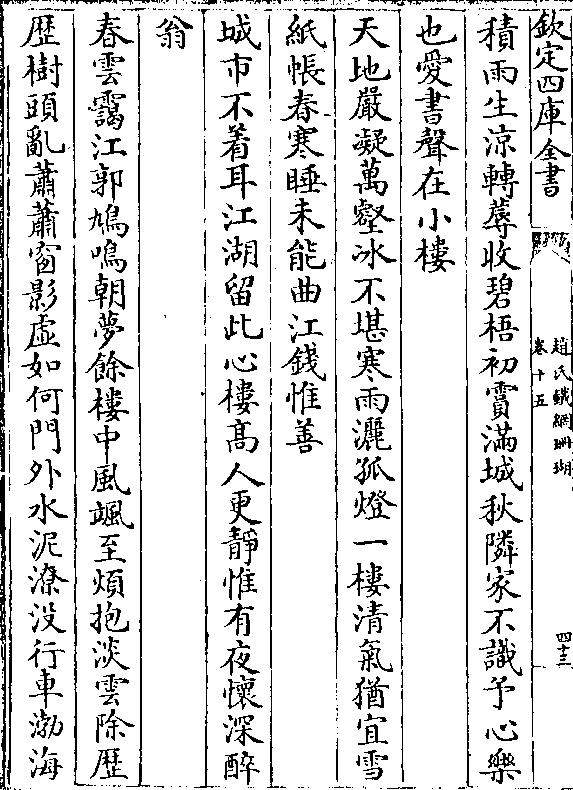 欽定四庫全書
趙氏鐵網珊瑚
卷十五
四十三
積雨生涼轉蓐收碧梧初霣滿城秋隣家不識予心樂
也愛書聲在小樓
天地嚴凝萬壑冰不堪寒雨灑孤燈一樓清氣猶宜雪
紙帳春寒睡未能曲江錢惟善
城市不着耳江湖留此心樓髙人更靜惟有夜懷深醉
翁
春雲靄江郭鳩鳴朝夢餘樓中風颯至煩抱淡雲除歴
歴樹頭亂蕭蕭窗影虛如何門外水泥潦没行車渤海